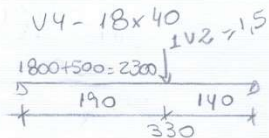 V4 - 18x40
1V2 = 1,5
1800+500=2300
190 140
330